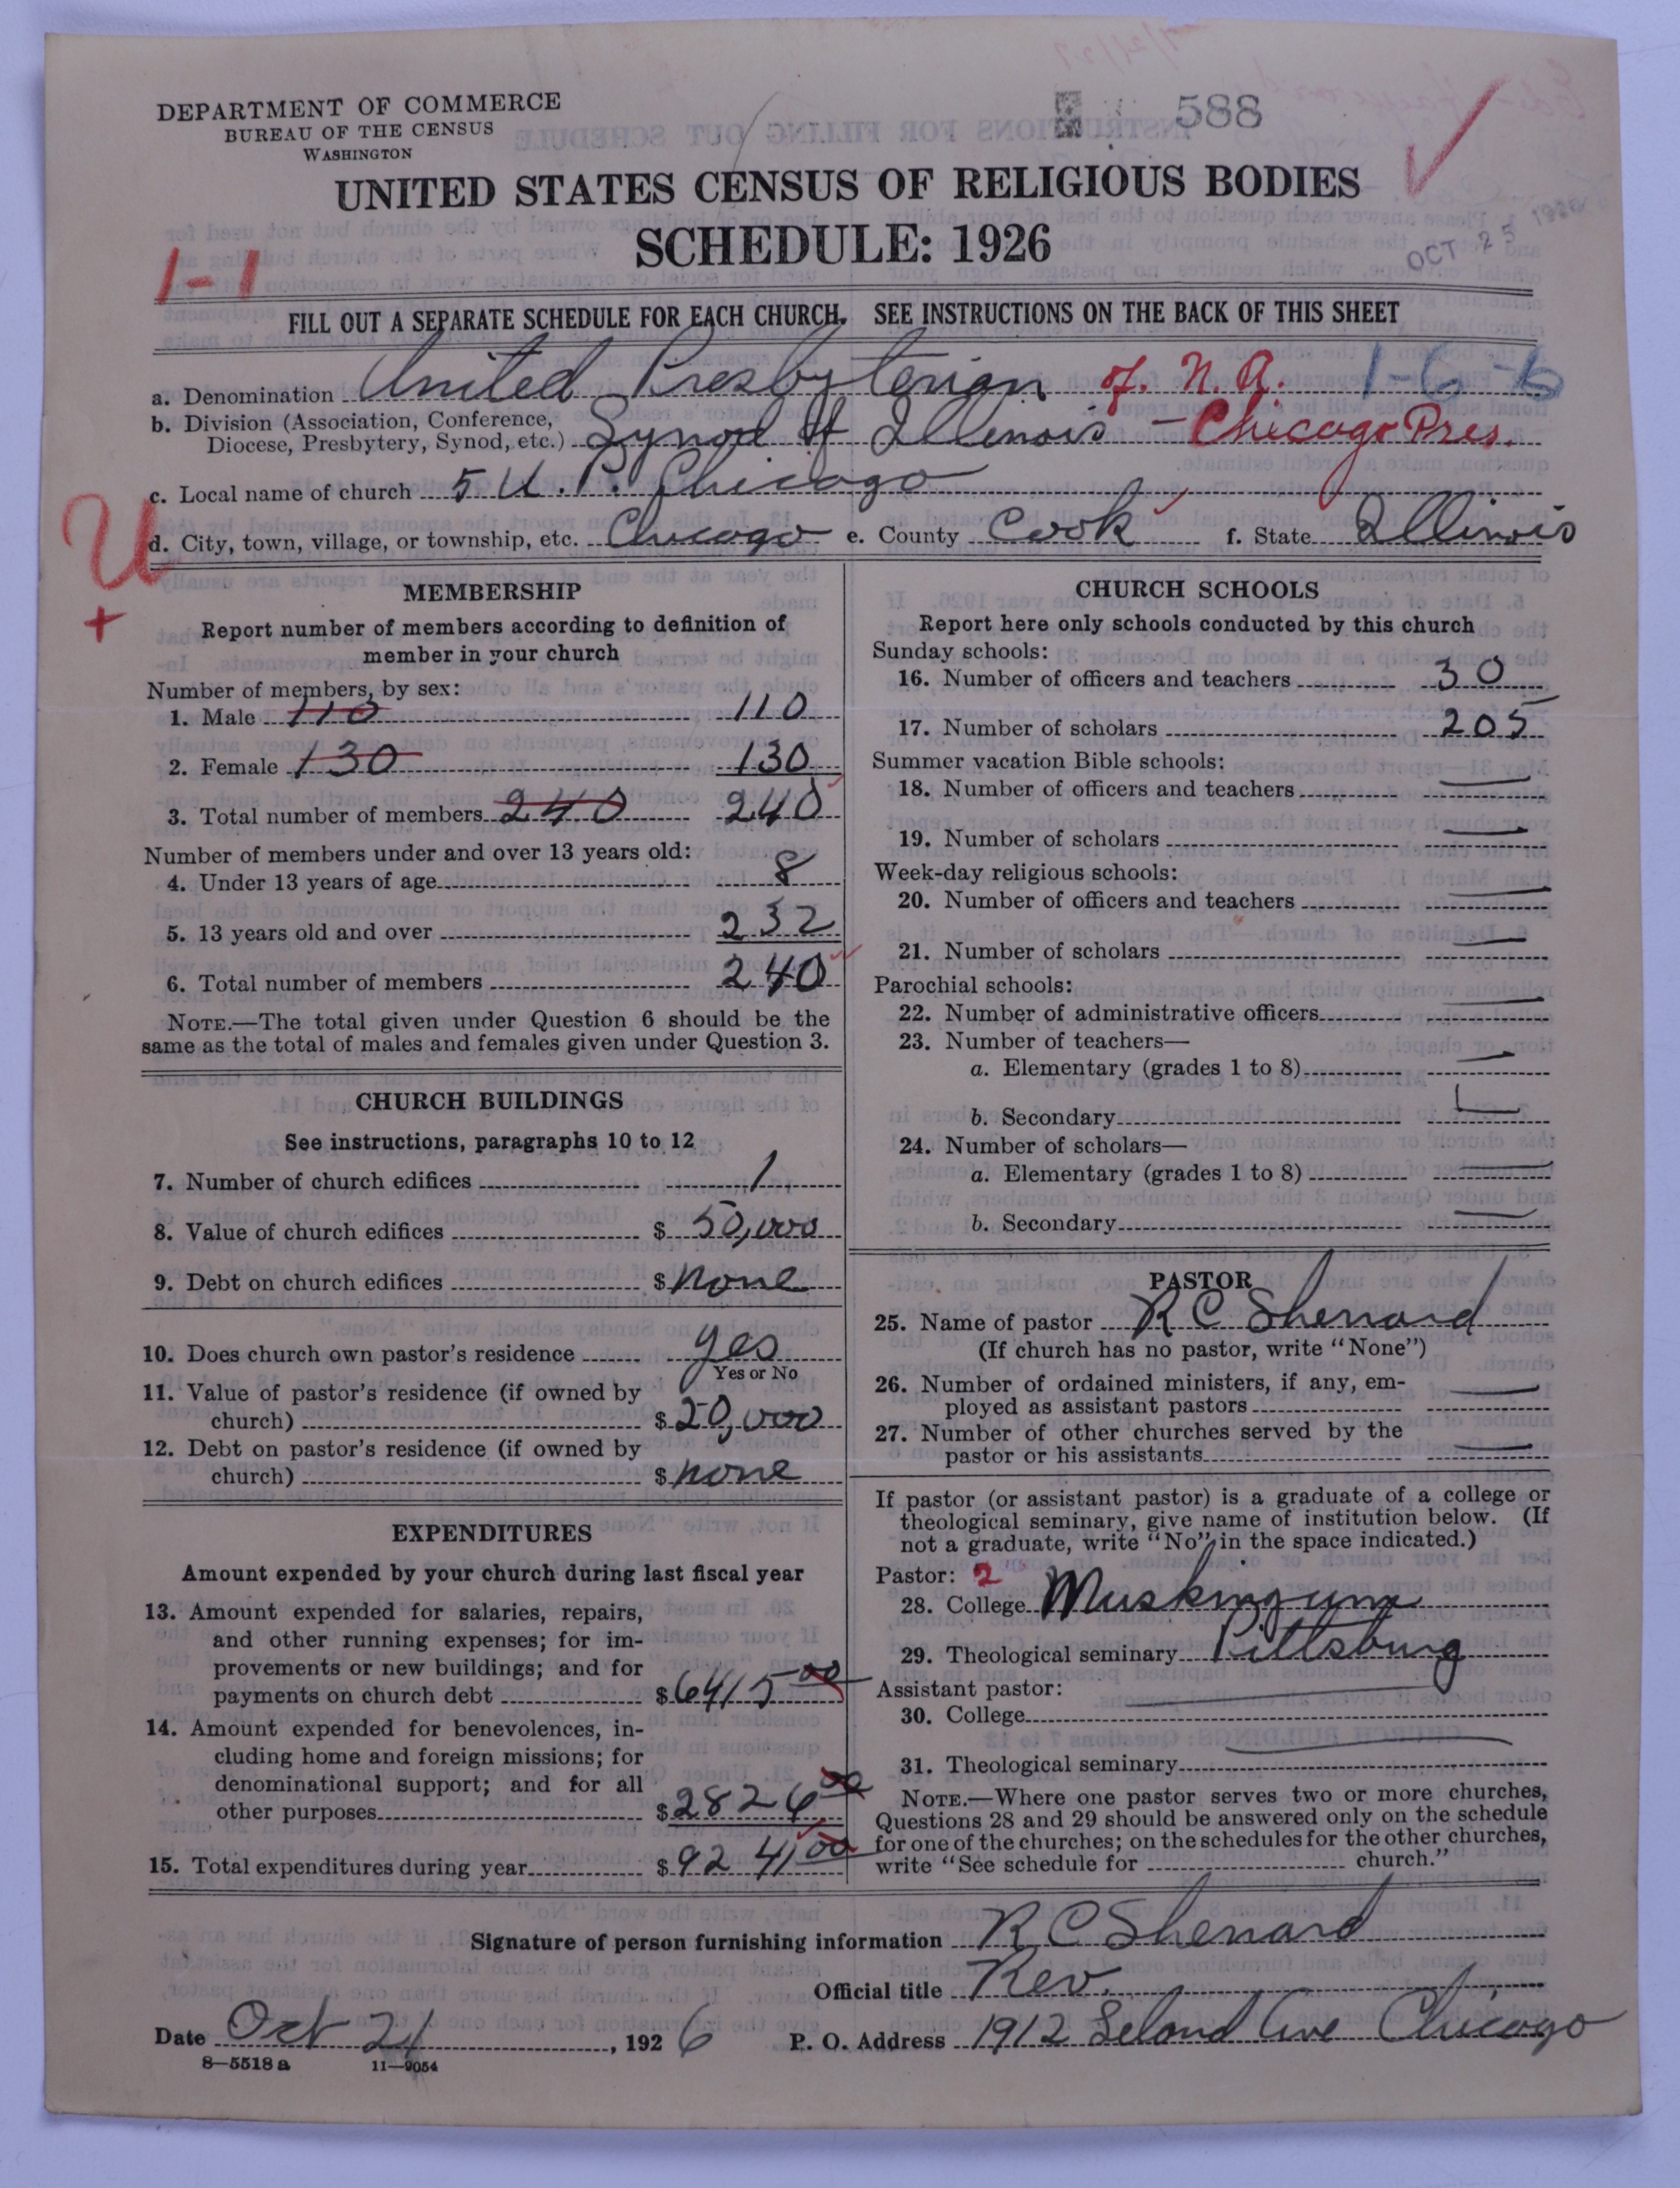 DEPARTMENT OF COMMERCE
BUREAU OF THE CENSUS
WASHINGTON
588
UNITED STATES CENSUS OF RELIGIOUS BODIES
SCHEDULE: 1926
OCT 25 1926
1-1
FILL OUT A SEPARATE SCHEDULE FOR EACH CHURCH. SEE INSTRUCTIONS ON THE BACK OF THIS SHEET
a. Denomination United Presbyterian of N.A. 1-6-6
b. Division (Association, Conference,
Diocese, Presbytery, Synod, etc.) Synod of Illinois - Chicago Pres.
c. Local name of church 5 U.P. Chicago
U
d. City, town, village, or township, etc. Chicago e. County Cook f. State Illinois
+
MEMBERSHIP
Report number of members according to definition of
member in your church
Number of members, by sex:
1. Male 110 110
2. Female 130 130
3. Total number of members 240 240
Number of members under and over 13 years old:
4. Under 13 years of age 8
5. 13 years old and over 232
6. Total number of members 240
NOTE.—The total given under Question 6 should be the
same as the total of males and females given under Question 3.
CHURCH BUILDINGS
See instructions, paragraphs 10 to 12
7. Number of church edifices 1
8. Value of church edifices $ 50,000
9. Debt on church edifices $ none
10. Does church own pastor's residence yes
Yes or No
11. Value of pastor's residence (if owned by
church) $ 20,000
12. Debt on pastor's residence (if owned by
church) $ none
EXPENDITURES
Amount expended by your church during last fiscal year
13. Amount expended for salaries, repairs,
and other running expenses; for im-
provements or new buildings; and for
payments on church debt $ 6415 00
14. Amount expended for benevolences, in-
cluding home and foreign missions; for
denominational support; and for all
other purposes $ 2826 00
15. Total expenditures during year $ 9241 00
CHURCH SCHOOLS
Report here only schools conducted by this church
Sunday schools:
16. Number of officers and teachers 30
17. Number of scholars 205
Summer vacation Bible schools:
18. Number of officers and teachers —
19. Number of scholars —
Week-day religious schools:
20. Number of officers and teachers —
21. Number of scholars —
Parochial schools:
22. Number of administrative officers —
23. Number of teachers—
a. Elementary (grades 1 to 8) —
b. Secondary —
24. Number of scholars—
a. Elementary (grades 1 to 8) —
b. Secondary —
PASTOR
25. Name of pastor R C Sherrard
(If church has no pastor, write "None")
26. Number of ordained ministers, if any, em-
ployed as assistant pastors —
27. Number of other churches served by the
pastor or his assistants —
If pastor (or assistant pastor) is a graduate of a college or
theological seminary, give name of institution below. (If
not a graduate, write "No" in the space indicated.)
Pastor: 2
28. College Muskingum
29. Theological seminary Pittsburg
Assistant pastor:
30. College —
31. Theological seminary —
NOTE.—Where one pastor serves two or more churches,
Questions 28 and 29 should be answered only on the schedule
for one of the churches; on the schedules for the other churches,
write "See schedule for church."
Signature of person furnishing information R C Sherrard
Official title Rev.
Date Oct 24, 1926 P. O. Address 1912 Leland Ave Chicago
8—5518 a 11—9054